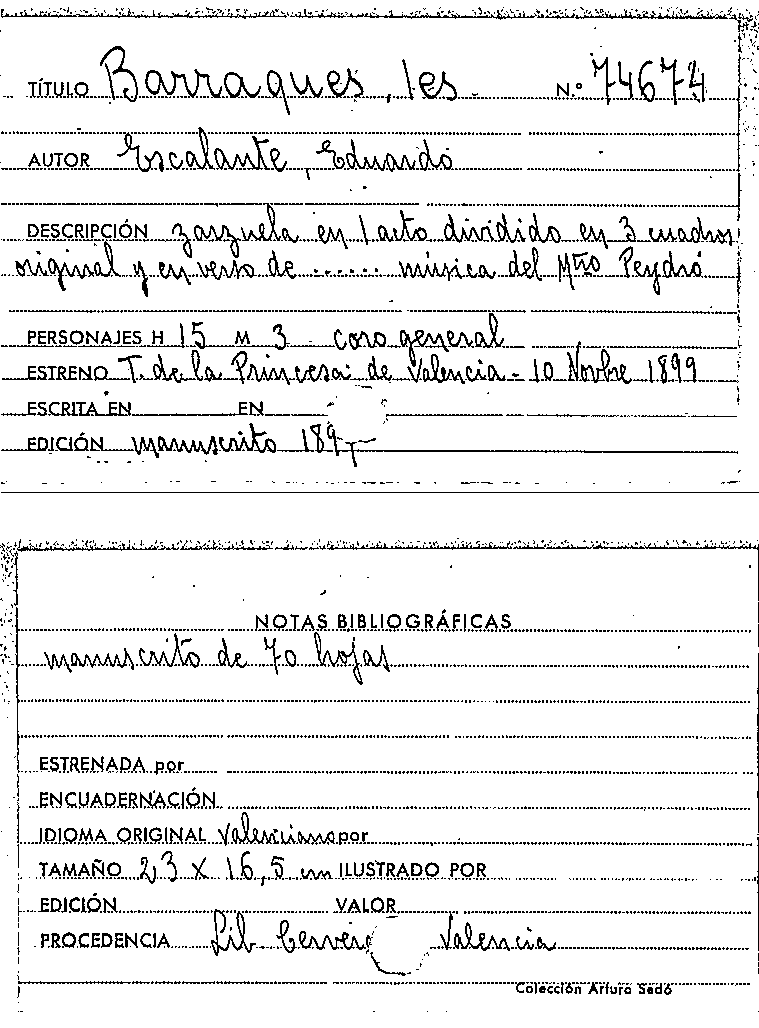 TÍTULO Barraques, les N.º 74674
AUTOR Escalante, Eduardo
DESCRIPCIÓN zarzuela en 1 acto dividido en 3 cuadros
original y en verso de ...... música del Mtro Peydró
PERSONAJES H 15 M 3 coro general
ESTRENO T. de la Princesa de Valencia - 10 Novbre 1899
ESCRITA EN EN
EDICIÓN manuscrito 189-
NOTAS BIBLIOGRÁFICAS
manuscrito de 70 hojas
ESTRENADA por
ENCUADERNACIÓN
IDIOMA ORIGINAL Valenciano por
TAMAÑO 23 x 16,5 cm ILUSTRADO POR
EDICIÓN VALOR
PROCEDENCIA Lib. Valencia
Colección Arturo Sedó